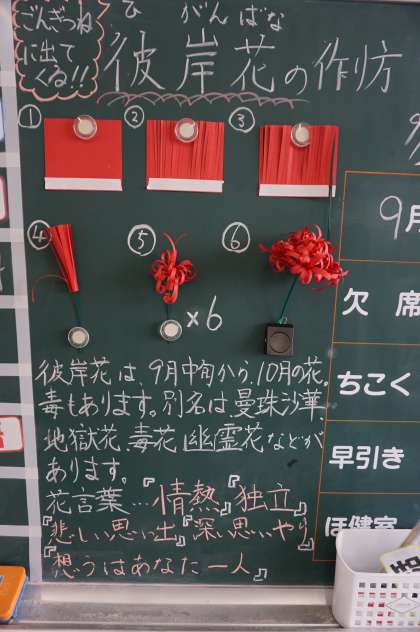 ごんぎつね
に出て
くる!!
ひ がん ばな
彼岸花の作り方
①
②
③
④
⑤
×6
⑥
彼岸花は、9月中旬から、10月の花。
毒もあります。別名は、曼珠沙華、
地獄花、毒花、幽霊花などが
あります。
花言葉…『情熱』『独立』
『悲しい思い出』『深い思いやり』
『想うはあなた一人』
9月
欠席
ちこく
早引き
ほ健室